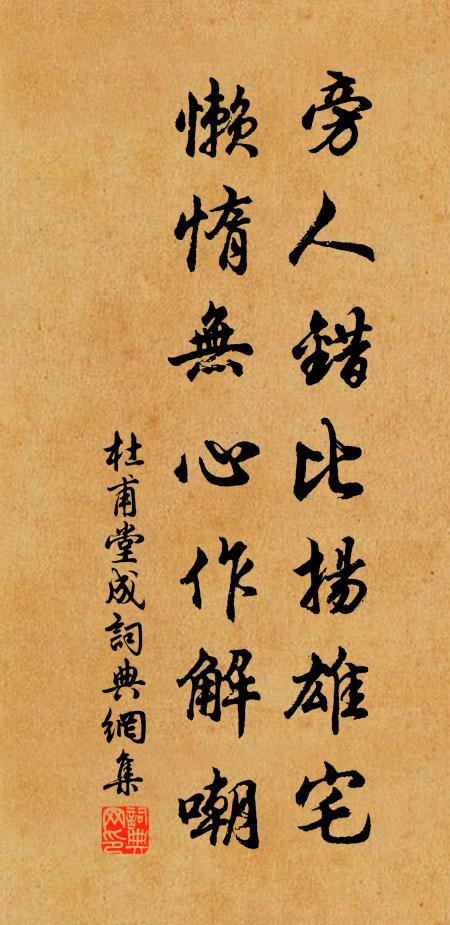 旁人錯比揚雄宅
懶惰無心作解嘲
杜甫堂成詞典網集
詞典網印